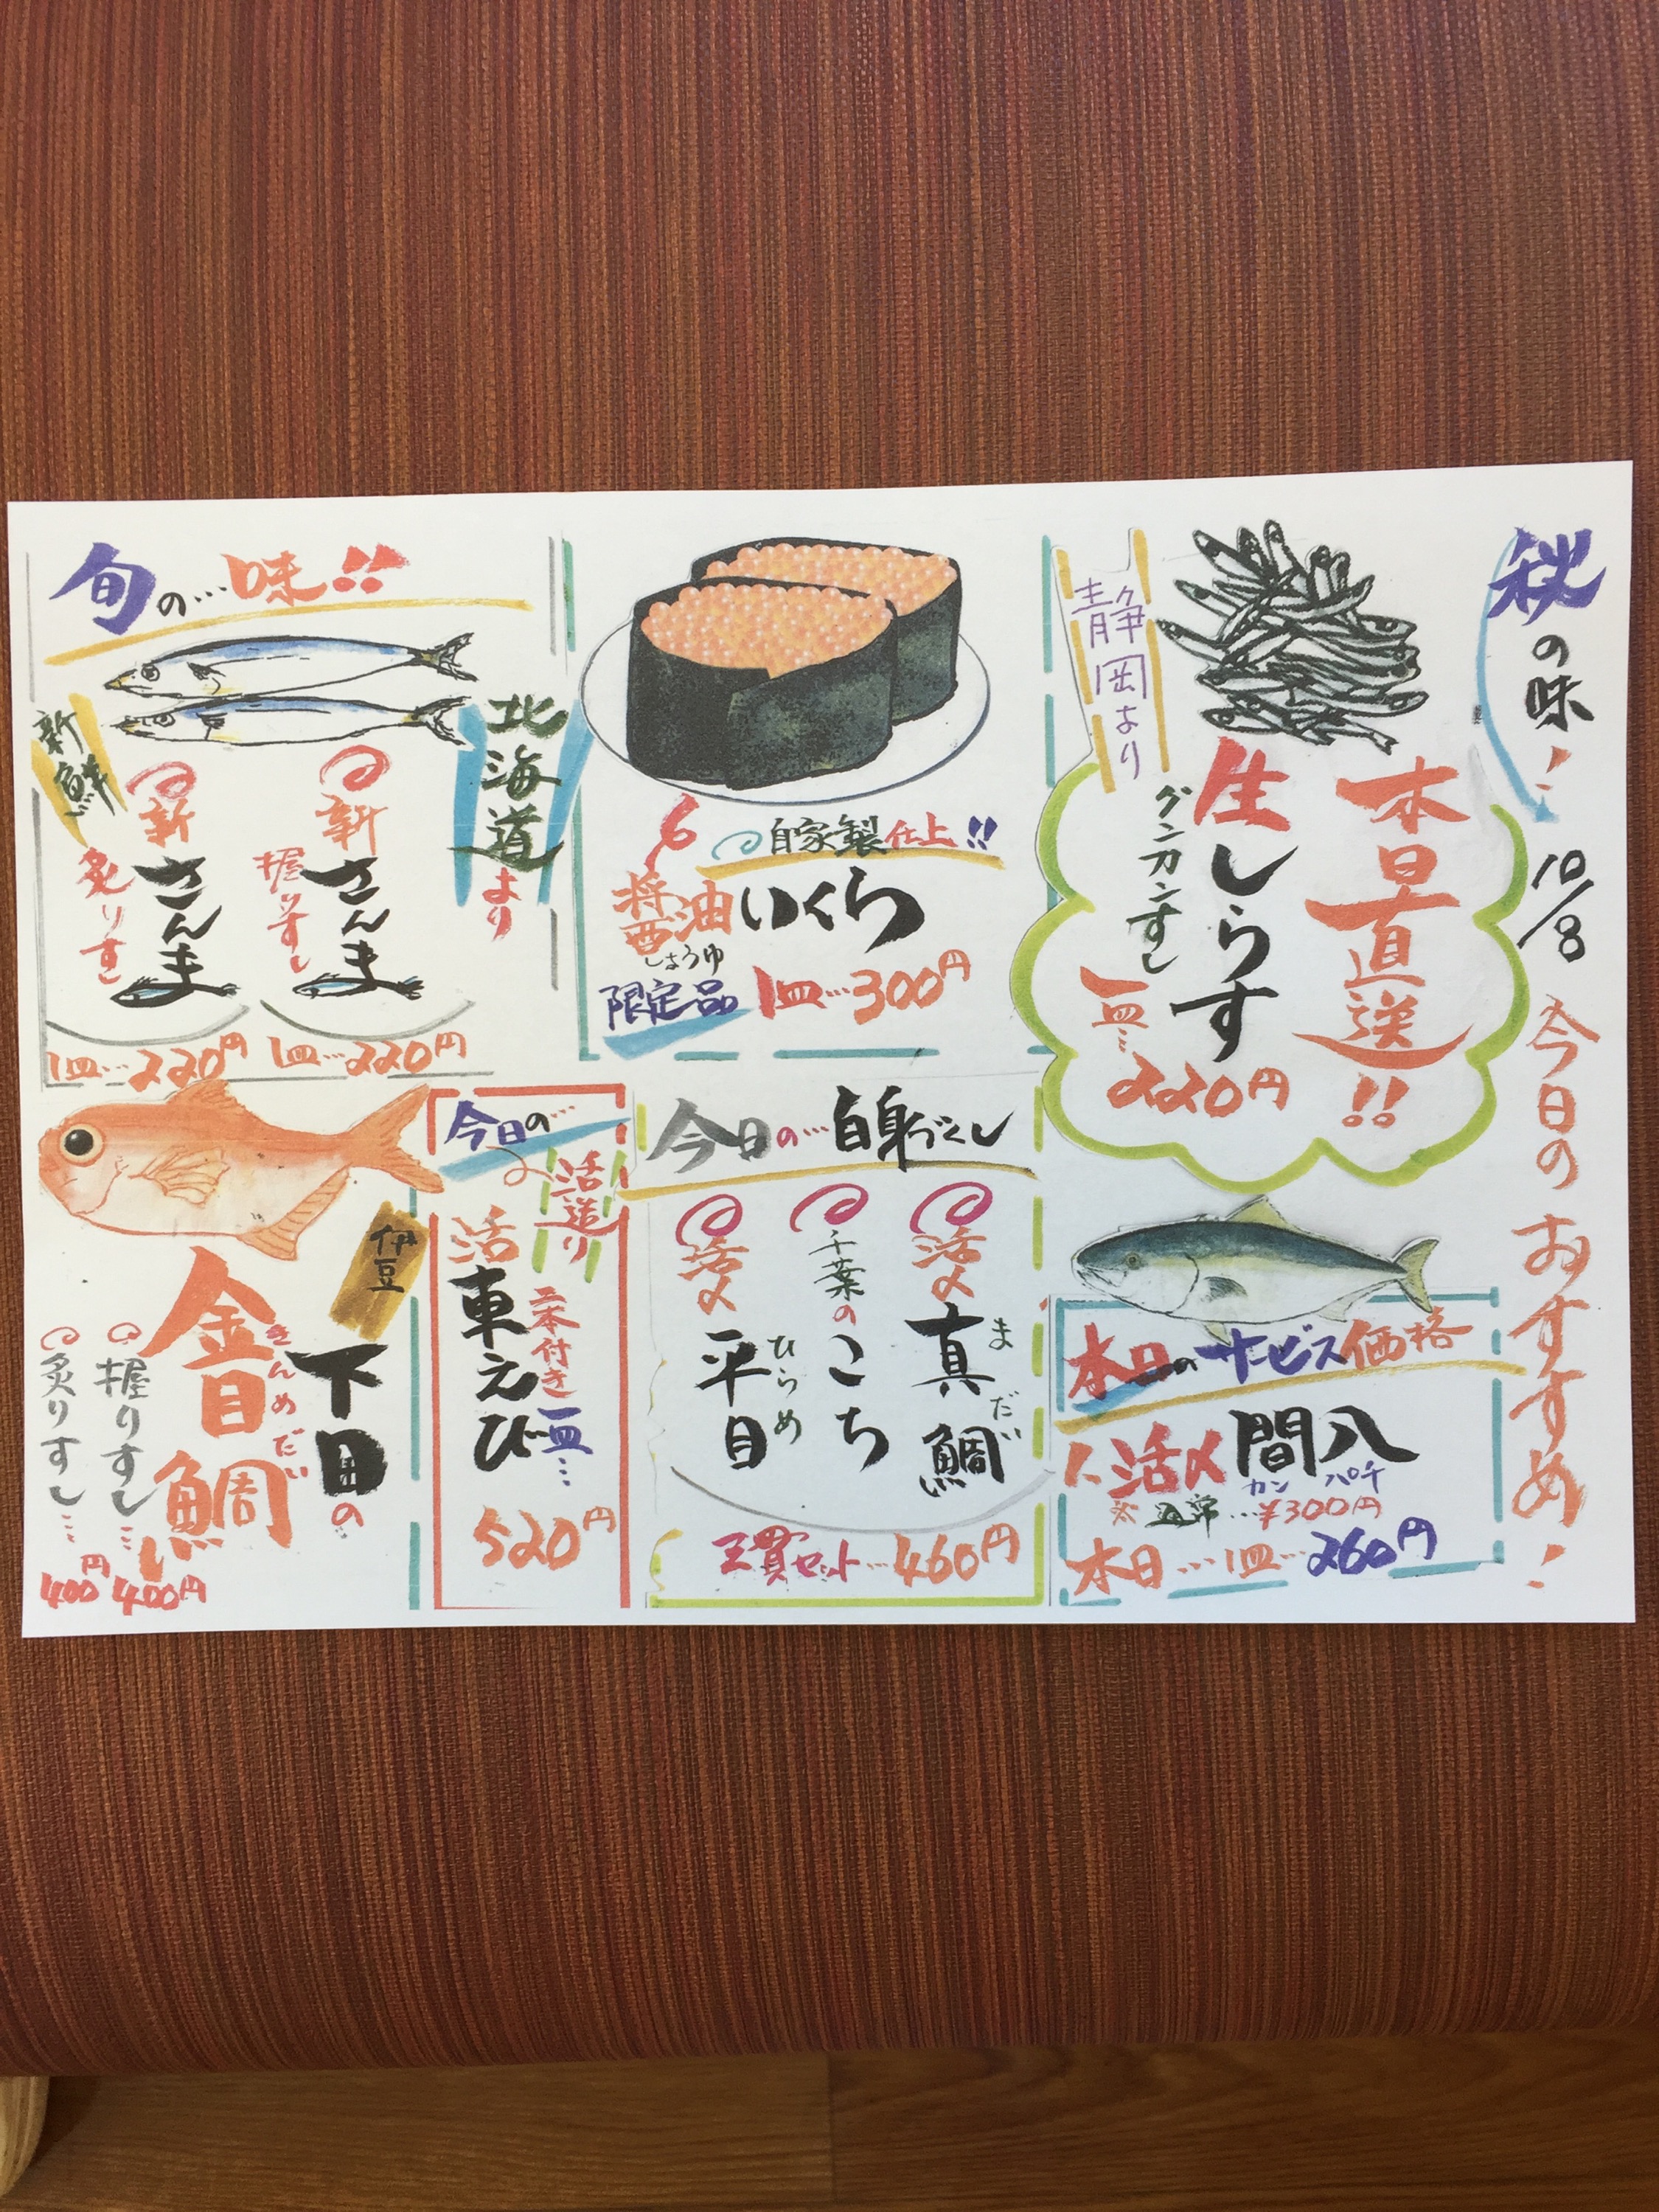 秋の味!
10/8
今日のおすすめ!
本日直送!!
静岡より
生しらす
グンカンすし
一皿…220円
本日のサービス価格
活〆間八
カンパチ
通常…¥300円
本日…1皿…260円
自家製仕上!!
醤油いくら
しょうゆ
限定品
1皿…300円
今日の…白身づくし
活〆真鯛
まだい
千葉のこち
活〆平目
ひらめ
三貫セット…460円
旬の…味!!
北海道より
新鮮
新さんま
握りすし
1皿…220円
新さんま
炙りすし
1皿…220円
今日の…
活造り
活車えび
二本付き一皿…
520円
伊豆
下田の
金目鯛
きんめだい
握りすし…
400円
炙りすし…
400円